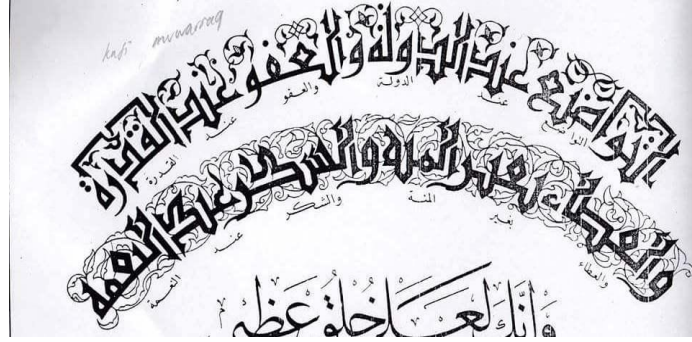 kufi muwarraq
التواضع عند الدولة والعفو عند القدرة
التواضع عند الدولة والعفو عند القدرة
والعطاء بغير المنة والشكر عند النعمة
والعطاء بغير المنة والشكر عند النعمة
وَإِنَّكَ لَعَلَىٰ خُلُقٍ عَظِيمٍ